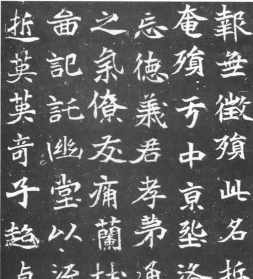 報無徵殞此名
奄殞于中京
忘德義君孝弟
之氣僚友痛蘭
啚記託幽堂以
英英奇子超